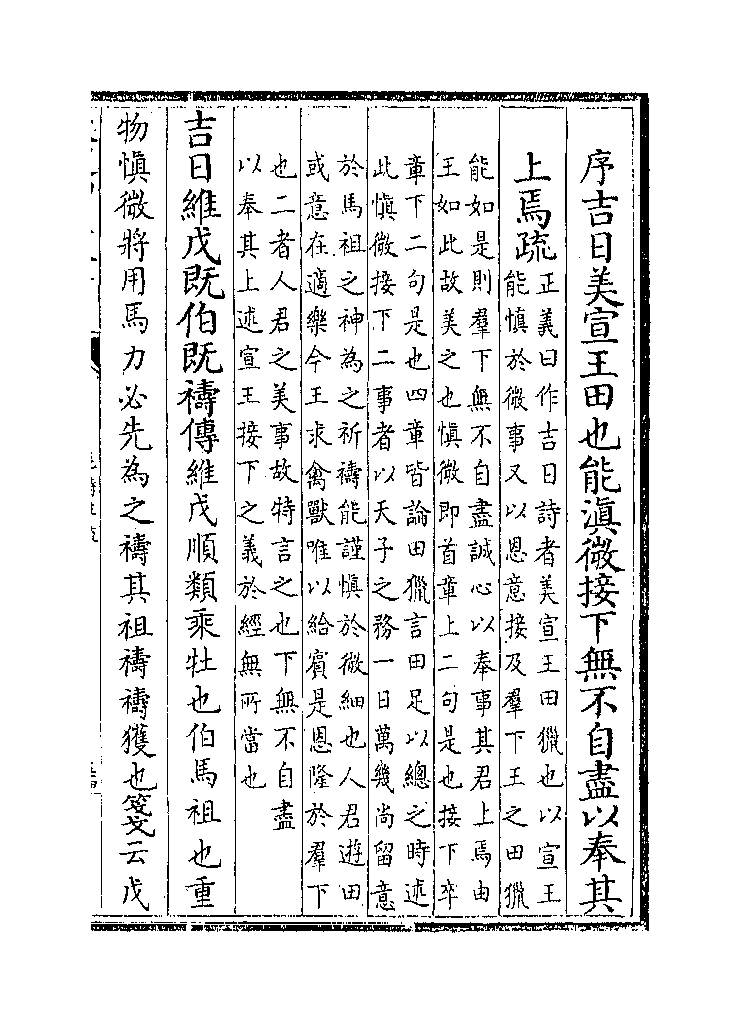 序吉日美宣王田也能滇微接下無不自盡以奉其
上焉疏
正義曰作吉日詩者美宣王田獵也以宣王
能慎於微事又以恩意接及羣下王之田獵
能如是則羣下無不自盡誠心以奉事其君上焉由
王如此故美之也慎微即首章上二句是也接下卒
章下二句是也四章皆論田獵言田足以總之時述
此慎微接下二事者以天子之務一日萬幾尚留意
於馬祖之神為之祈禱能謹慎於微細也人君遊田
或意在適樂今王求禽獸唯以給賓是恩隆於羣下
也二者人君之美事故特言之也下無不自盡
以奉其上述宣王接下之義於經無所當也
吉日維戊既伯既禱傳維戊順類乘牡也伯馬祖也重
物慎微將用馬力必先為之禱其祖禱禱獲也箋云戊